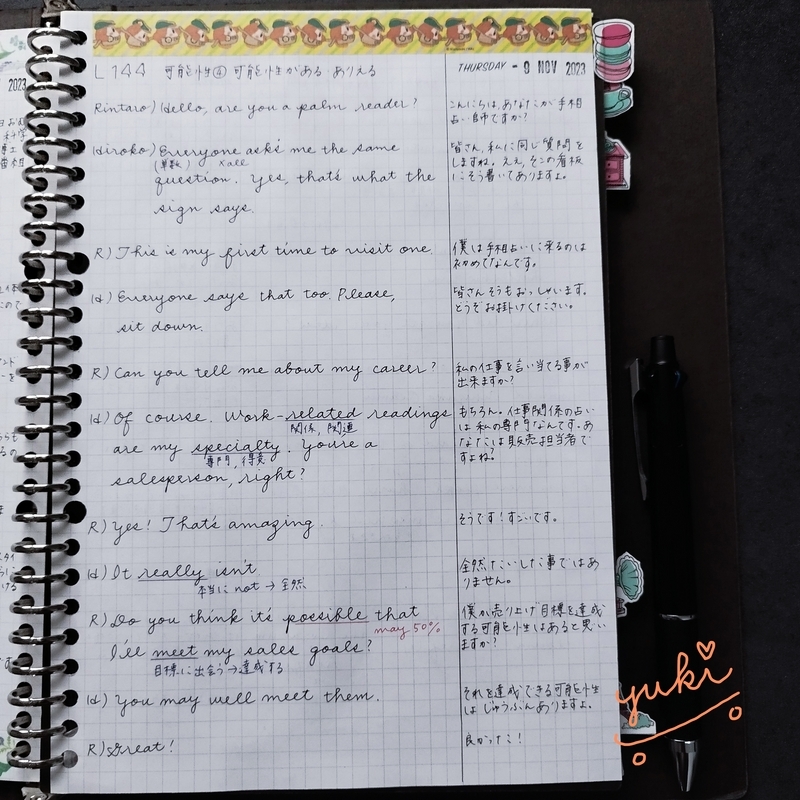 L 144 可能性④ 可能性がある・ありえる
THURSDAY - 9 NOV 2023
Rintaro) Hello, are you a palm reader?
こんにちは、あなたが手相
占い師ですか?
Hiroko) Everyone asks me the same
(単数) xall
question. Yes, that's what the
sign says.
皆さん、私に同じ質問を
しますね。ええ、そこの看板
にそう書いてありますよ。
R) This is my first time to visit one.
僕は手相占いに来るのは
初めてなんです。
H) Everyone says that too. Please,
sit down.
皆さんそうもおっしゃいます。
どうぞお掛けください。
R) Can you tell me about my career?
私の仕事を言い当てる事が
出来ますか?
H) Of course. Work-related readings
関係、関連
are my specialty. You're a
専門、得意
salesperson, right?
もちろん。仕事関係の占い
は私の専門なんです。あ
なたは販売担当者で
すよね?
R) Yes! That's amazing.
そうです!すごいです。
H) It really isn't
本当に not → 全然
全然たいした事ではあ
りません。
R) Do you think it's possible that
may 50%
I'll meet my sales goals?
目標に出会う→達成する
僕が売り上げ目標を達成
する可能性はあると思い
ますか?
H) You may well meet them.
それを達成できる可能性
はじゅうぶんありますよ。
R) Great!
良かった!
yuki
2023